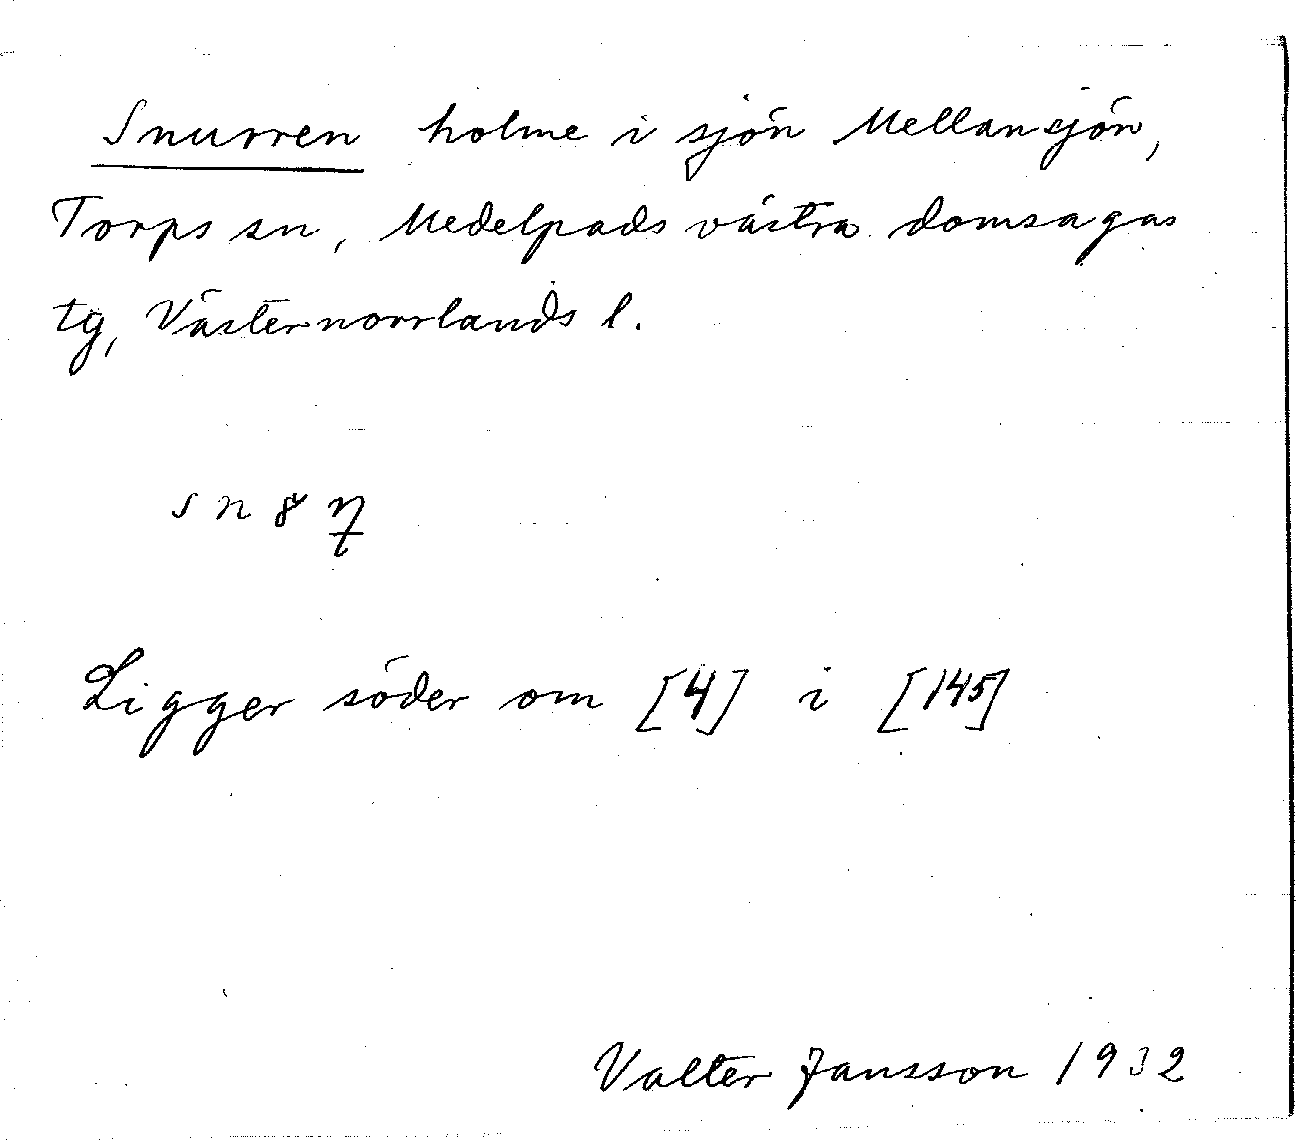 Snurren holme i sjön Mellansjön,
Torps sn, Medelpads västra domsagas
tg, Västernorrlands l.
Ligger söder om [4] i [145]
Valter Jansson 1932